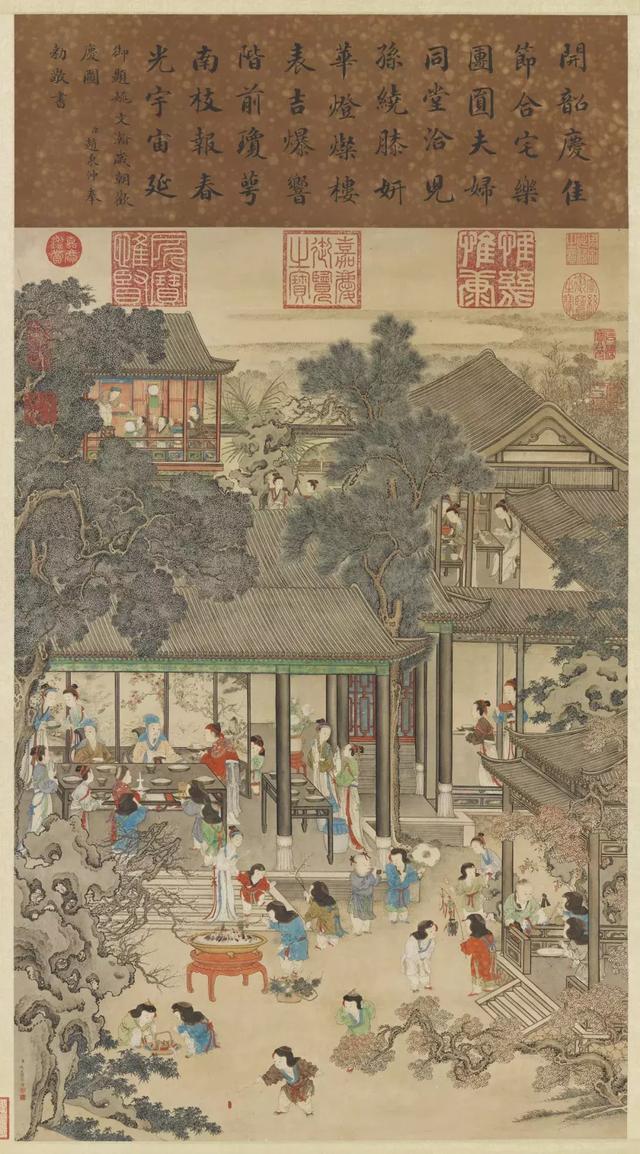 開韶慶佳
節合宅樂
團圓夫婦
同堂洽兒
孫繞膝妍
華燈燦樓
表吉爆響
階前瓊萼
南枝報春
光宇宙延
御題姚文瀚歲朝歡
慶圖
臣趙秉沖奉
勅敬書
惟幾惟康
嘉慶御覽之寶
所寶惟賢
嘉慶鑑賞